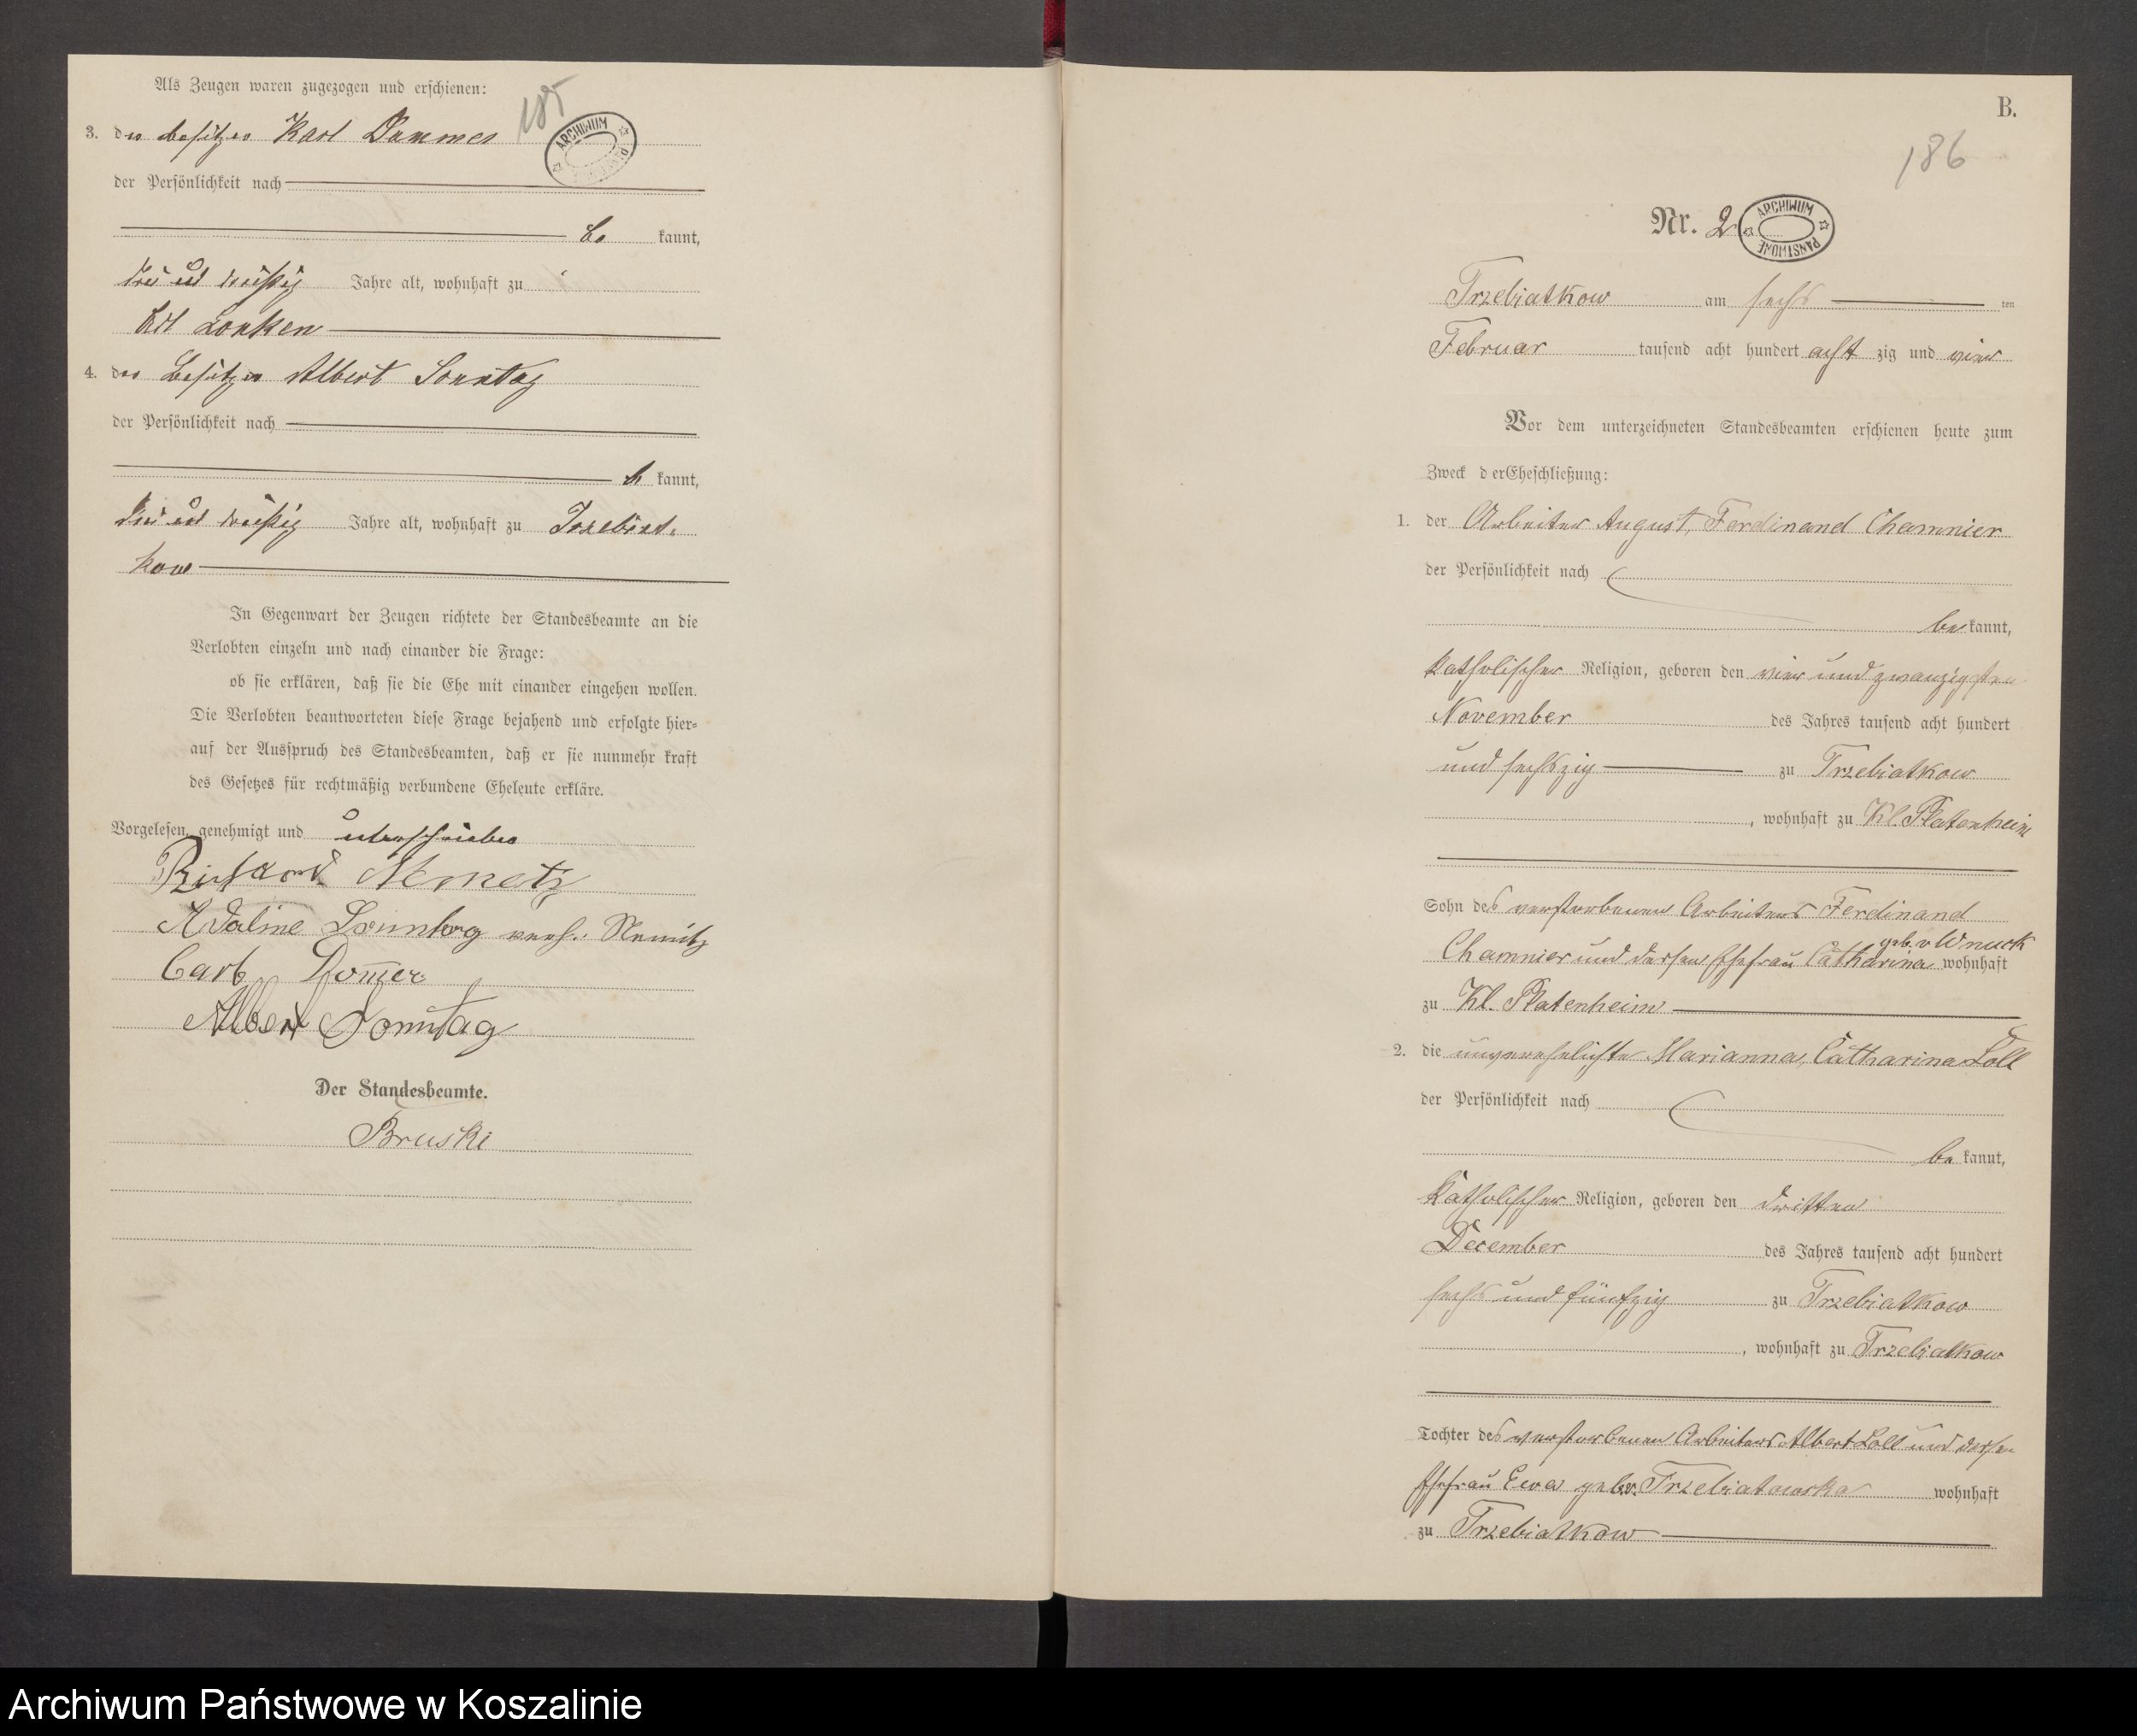 Als Zeugen waren zugezogen und erschienen:
185
ARCHIWUM
3. der Besitzer Karl Dammer
der Persönlichkeit nach
be kannt,
drei und dreißig Jahre alt, wohnhaft zu
Lonken
4. der Besitzer Albert Sonntag
der Persönlichkeit nach
be kannt,
drei und dreißig Jahre alt, wohnhaft zu Trzebiat-
kow
In Gegenwart der Zeugen richtete der Standesbeamte an die
Verlobten einzeln und nach einander die Frage:
ob sie erklären, daß sie die Ehe mit einander eingehen wollen.
Die Verlobten beantworteten diese Frage bejahend und erfolgte hier-
auf der Ausspruch des Standesbeamten, daß er sie nunmehr kraft
des Gesetzes für rechtmäßig verbundene Eheleute erkläre.
Vorgelesen, genehmigt und unterschrieben
Richard Nemetz
Adaline Sonntag
Carl Domer
Albert Sonntag
Der Standesbeamte.
Bruski
B.
186
Nr. 2
ARCHIWUM PAŃSTWOWE
Trzebiatkow am sechs ten
Februar tausend acht hundert acht zig und vier
Vor dem unterzeichneten Standesbeamten erschienen heute zum
Zweck d erEheschließung:
1. der Arbeiter August, Ferdinand Chamnier
der Persönlichkeit nach
be kannt,
katholischer Religion, geboren den vier und zwanzigsten
November des Jahres tausend acht hundert
und sechszig zu Trzebiatkow
, wohnhaft zu Kl. Platenheim
Sohn des verstorbenen Arbeiters Ferdinand
geb. v Wnuck
Chamnier und dessen Ehefrau Catharina wohnhaft
zu Kl. Platenheim
2. die unverehelichte Marianna, Catharina Loll
der Persönlichkeit nach
be kannt,
katholischer Religion, geboren den dritten
December des Jahres tausend acht hundert
sechs und fünfzig zu Trzebiatkow
, wohnhaft zu Trzebiatkow
Tochter des verstorbenen Arbeiters Albert Loll und dessen
Ehefrau Ewa geb. v. Trzebiatowska wohnhaft
zu Trzebiatkow
Archiwum Państwowe w Koszalinie